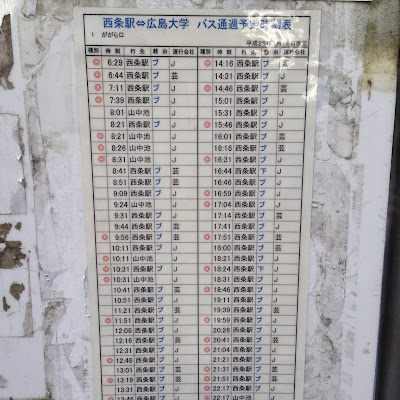 西条駅⇔広島大学 バス通過予定時刻表
1 ががら口
種別 時刻 行名 経由 運行会社 種別 時刻 行名 経由 運行会社
◎ 6:29 西条駅 ブ J ◎ 14:16 西条駅 ブ J
◎ 6:44 西条駅 ブ 芸 14:31 西条駅 ブ J
◎ 7:11 西条駅 ブ J 14:46 西条駅 ブ 芸
◎ 7:39 西条駅 ブ J 15:01 西条駅 ブ J
8:01 山中池 J 15:31 西条駅 ブ J
8:21 西条駅 ブ J ◎ 15:46 西条駅 ブ 芸
◎ 8:21 山中池 J 16:01 西条駅 芸
◎ 8:26 山中池 J 16:16 西条駅 芸
◎ 8:31 山中池 J ◎ 16:31 西条駅 ブ J
8:41 西条駅 ブ 芸 16:44 西条駅 下 J
8:51 西条駅 ブ 芸 16:46 西条駅 芸
9:09 西条駅 ブ J ◎ 16:59 西条駅 ブ J
9:24 山中池 J ◎ 17:04 西条駅 ブ J
9:31 西条駅 ブ J 17:14 西条駅 ブ J
9:44 西条駅 ブ 芸 17:41 西条駅 ブ 芸
◎ 9:56 西条駅 ブ 芸 ◎ 17:51 西条駅 ブ 芸
10:11 西条駅 ブ J 18:00 西条駅 芸
◎ 10:11 山中池 J 18:21 西条駅 ブ J
◎ 10:31 山中池 J ◎ 18:24 西条駅 下 J
10:41 西条駅 ブ 芸 ◎ 18:46 西条駅 ブ J
10:51 西条駅 ブ J 19:11 西条駅 ブ J
11:21 西条駅 ブ 芸 19:39 西条駅 ブ J
◎ 11:51 西条駅 ブ J ◎ 19:59 西条駅 ブ J
12:06 西条駅 ブ J 20:26 西条駅 ブ J
12:16 西条駅 ブ 芸 ◎ 20:41 西条駅 ブ 芸
12:31 西条駅 ブ J ◎ 21:04 西条駅 ブ J
◎ 12:46 西条駅 ブ J 西条駅 ブ
13:01 西条駅 ブ 芸 ◎ 21:31 西条駅 ブ
◎ 西条駅 ブ 芸 ◎ 21:51 西条駅 ブ
13:31 西条駅 ブ J 22:17 西条駅 ブ J
西条駅 ブ J 22:17 山中池 J